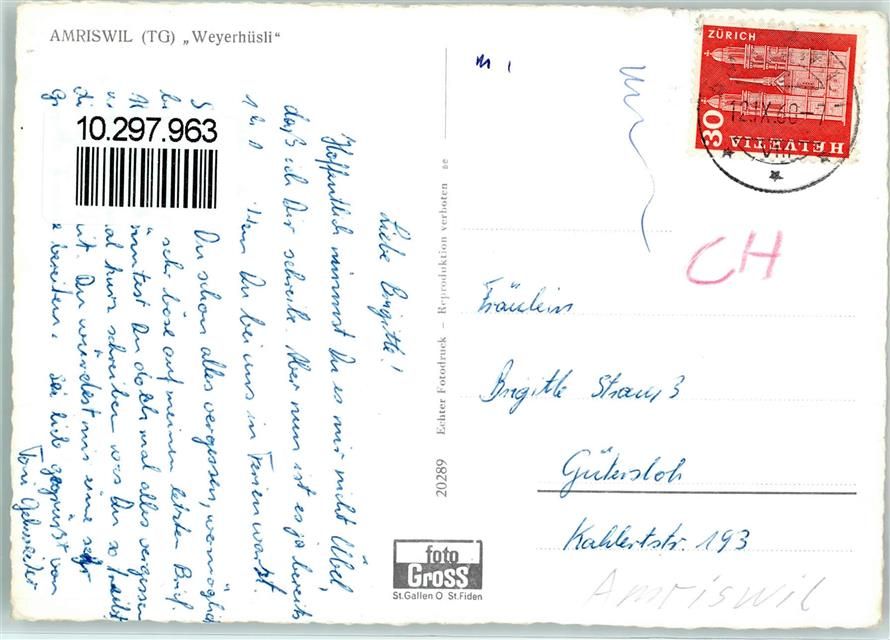 AMRISWIL (TG) „Weyerhüsli"
10.297.963
Liebe Brigitte!
Hoffentlich nimmst Du es mir nicht Übel,
daß ich Dir schreibe. Aber nun ist es ja bereits
Du bei uns in Ferien warst.
Du schon alles vergessen, womöglich
sehr böse auf meinen letzten Brief.
Du doch mal alles vergessen
al kurz schreiben was Du so treibst
Du würdest mir eine sehr
e bereiten. Sei lieb gegrüßt von
Toni
20289 Echter Fotodruck – Reproduktion verboten
foto
Gross
St.Gallen O St.Fiden
ZÜRICH
30
HELVETIA
12.IX.60–7
VIII
CH
Fräulein
Brigitte Strauß
Gütersloh
Kahlertstr. 193
Amriswil